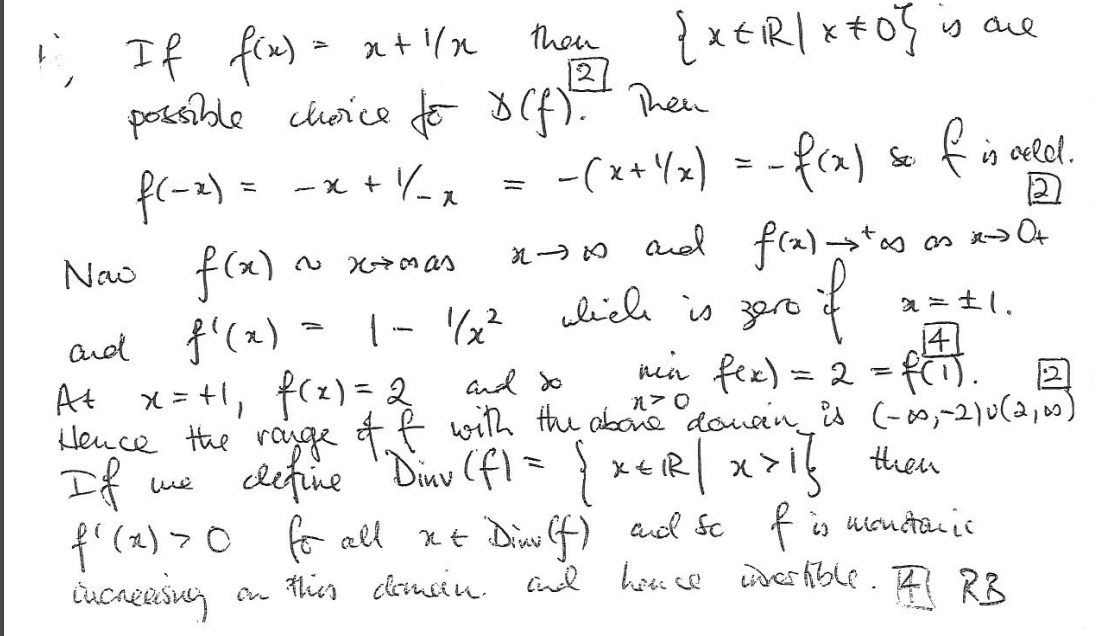 i, If f(x) = x + 1/x then {x ∈ ℝ | x ≠ 0} is one
possible choice for D(f). [2] Then
f(-x) = -x + 1/-x = -(x + 1/x) = -f(x) so f is odd. [2]
Now f(x) ~ x → ∞ as x → ∞ and f(x) → +∞ as x → 0+
and f'(x) = 1 - 1/x² which is zero if x = ±1. [4]
At x = +1, f(x) = 2 and so min x>0 f(x) = 2 = f(1). [2]
Hence the range of f with the above domain is (-∞,-2)∪(2,∞)
If we define Dinv(f) = {x ∈ ℝ | x > 1} then
f'(x) > 0 for all x ∈ Dinv(f) and so f is monotonic
increasing on this domain. and hence invertible. [4] RB